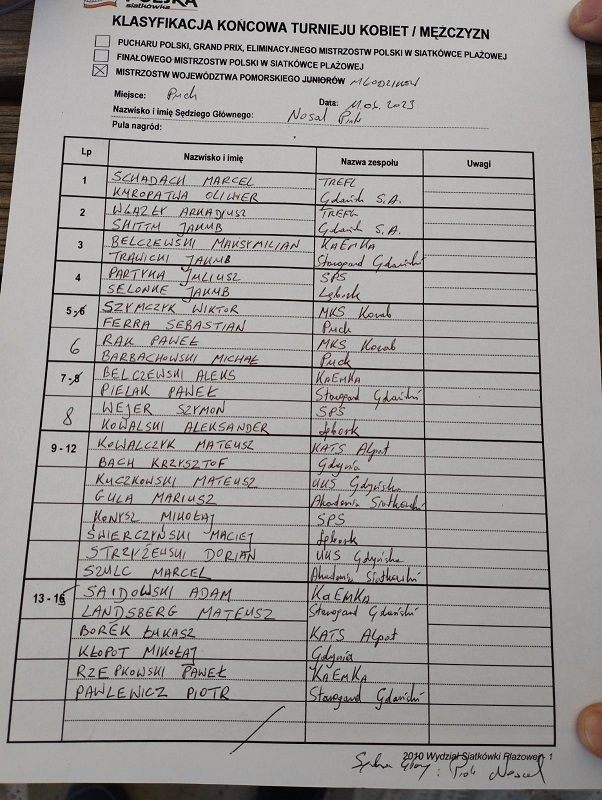 POLSKA
siatkówka
KLASYFIKACJA KOŃCOWA TURNIEJU KOBIET / MĘŻCZYZN
PUCHARU POLSKI, GRAND PRIX, ELIMINACYJNEGO MISTRZOSTW POLSKI W SIATKÓWCE PLAŻOWEJ
FINAŁOWEGO MISTRZOSTW POLSKI W SIATKÓWCE PLAŻOWEJ
MISTRZOSTW WOJEWÓDZTWA POMORSKIEGO JUNIORÓW MŁODZIKÓW
Miejsce: Puck Data: 11.06.2023
Nazwisko i imię Sędziego Głównego: Nosal Piotr
Pula nagród:
Lp Nazwisko i imię Nazwa zespołu Uwagi
1 SCHADACH MARCEL TREFL
KUROPATWA OLIWIER Gdańsk S.A.
2 WGAZŁY ARKADIUSZ TREFL
SHITTM JAKUB Gdańsk S.A.
3 BELCZEWSKI MAKSYMILIAN KAEMKA
TRAWICKI JAKUB Starogard Gdański
4 PARTYKA JULIUSZ SPS
SELONKE JAKUB Lębork
5-6 SZYMCZYK WIKTOR MKS Korab
FERRA SEBASTIAN Puck
6 RAK PAWEŁ MKS Korab
BARBACHOWSKI MICHAŁ Puck
7-8 BELCZEWSKI ALEKS KAEMKA
PIELAK PAWEŁ Starogard Gdański
8 WEJER SZYMON SPS
KOWALSKI ALEKSANDER Lębork
9 - 12 KOWALCZYK MATEUSZ KATS Alpat
BACH KRZYSZTOF Gdynia
KUCZKOWSKI MATEUSZ UKS Gdyńska
GULA MARIUSZ Akademia Siatkówki
KONYSZ MIKOŁAJ SPS
ŚWIERCZYŃSKI MACIEJ Lębork
STRZYŻEWSKI DORIAN UKS Gdyńska
SZULC MARCEL Akademia Siatkówki
13 - 16 SAIDOWSKI ADAM KAEMKA
LANDSBERG MATEUSZ Starogard Gdański
BOREK ŁUKASZ KATS Alpat
KŁOPOT MIKOŁAJ Gdynia
RZEPKOWSKI PAWEŁ KAEMKA
PAWLEWICZ PIOTR Starogard Gdański
2010 Wydział Siatkówki Plażowej 1
Sędzia Główny: Piotr Nosal